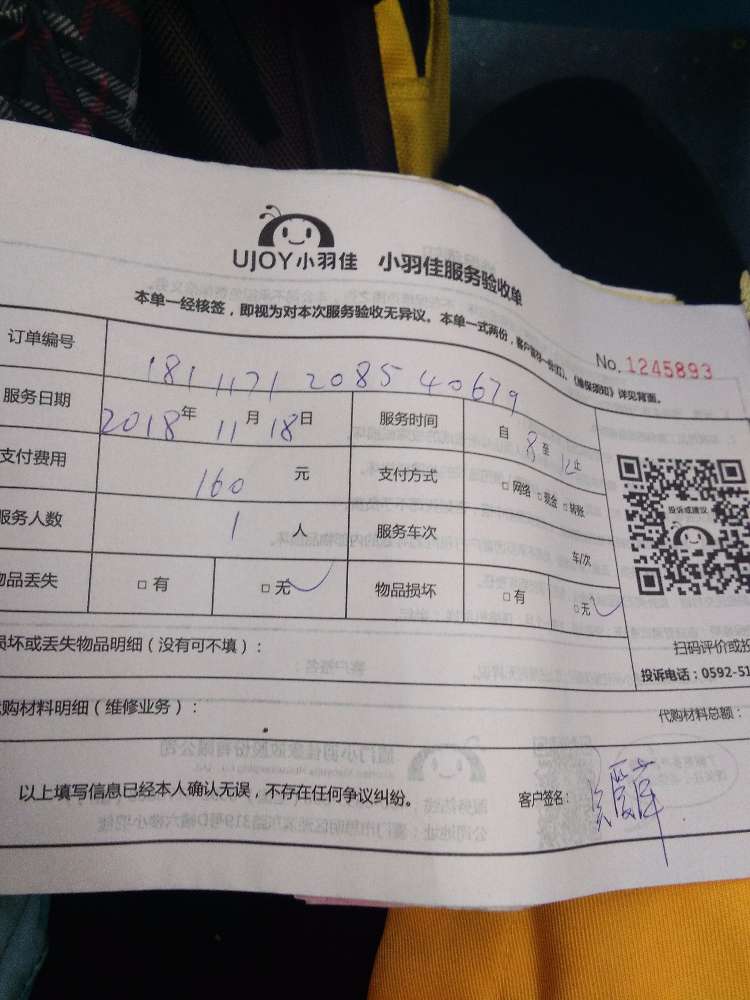 UJOY小羽佳 小羽佳服务验收单
本单一经核签，即视为对本次服务验收无异议。本单一式两份，客户留存一份(红)，《维保须知》详见背面。
No. 1245893
订单编号 1811171208540679
服务日期 2018年 11月 18日 服务时间 自 8 至 12 止
支付费用 160 元 支付方式 □ 网络 □ 现金 □ 转账
服务人数 1 人 服务车次 车/次
物品丢失 □ 有 □ 无 物品损坏 □ 有 □ 无
投诉或建议
损坏或丢失物品明细（没有可不填）：
扫码评价或投
投诉电话：0592-51
代购材料明细（维修业务）：
代购材料总额：
以上填写信息已经本人确认无误，不存在任何争议纠纷。 客户签名：